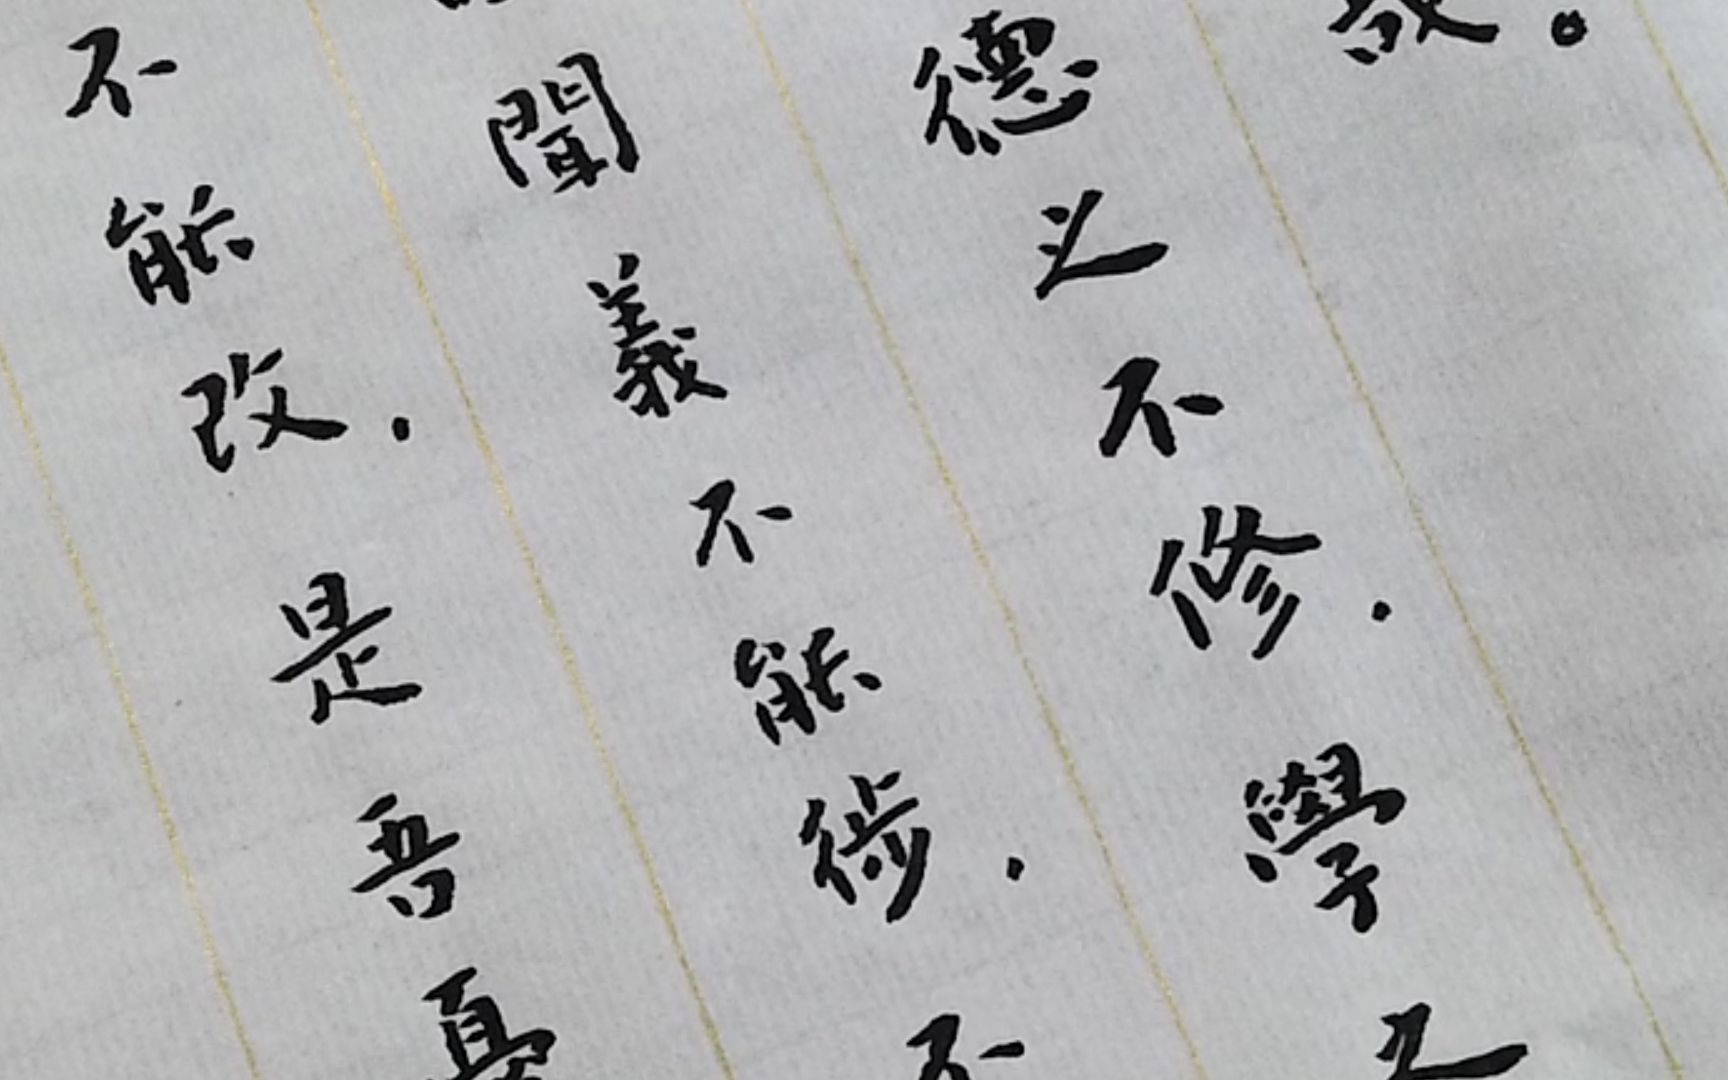 哉。
德之不修．學之
聞義不能徙．不
不能改．是吾憂